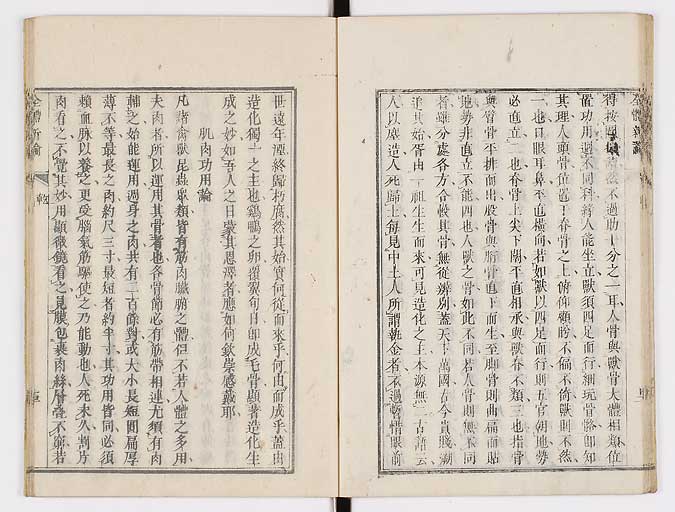 全體新論
得按圖
然不過助十分之一耳人骨與獸骨大體相類位
置功用逈不同科緣人能坐立獸須四足而行細玩骨骼卽知
其理人頭骨位置于脊骨之上俯仰顧盻不偏不倚獸則不然
一也口眼耳鼻平直橫向若如獸以四足而行則五官朝地勢
必直立二也脊骨上尖下闊平直相承與獸脊不類三也指骨
與臂骨平排而出股骨與脛骨直下而生至脚骨則曲偏而貼
地勢非直立不能四也人獸之骨如此不同若人骨則無不同
者雖分處各方合骸其骨無從辨別蓋天下萬國古今貴賤溯
追其始胥由一祖生生而來可見造化之主本源無二古語云
人以塵造人死歸土每見中土人所謂執金者不過暫惜眼前
世遠年湮終歸朽腐然其始實何從而來乎何由而成乎蓋由
造化獨一之主也鷄鴨之卵覆翼旬日卽成毛骨顯著造化生
成之妙如吾人之日蒙其恩澤者應如何欽崇感戴耶
肌肉功用論
凡諸禽獸昆蟲衆類皆有筋肉臟腑之體但不若人體之多用
夫肉者所以運用其骨者也各骨節必有筋帶相連尤須有肉
輔之始能運用過身之肉共有二百餘對或大小長短圓扁厚
薄不等最長之肉約尺三寸最短者約半寸其功用皆同必須
賴血脉以養之更受腦氣筋驅使之乃能動也人死未久割片
肉看之不覺其妙用顯微鏡看之見膜包裹肉絲層疊不窮若
全體新論
乾